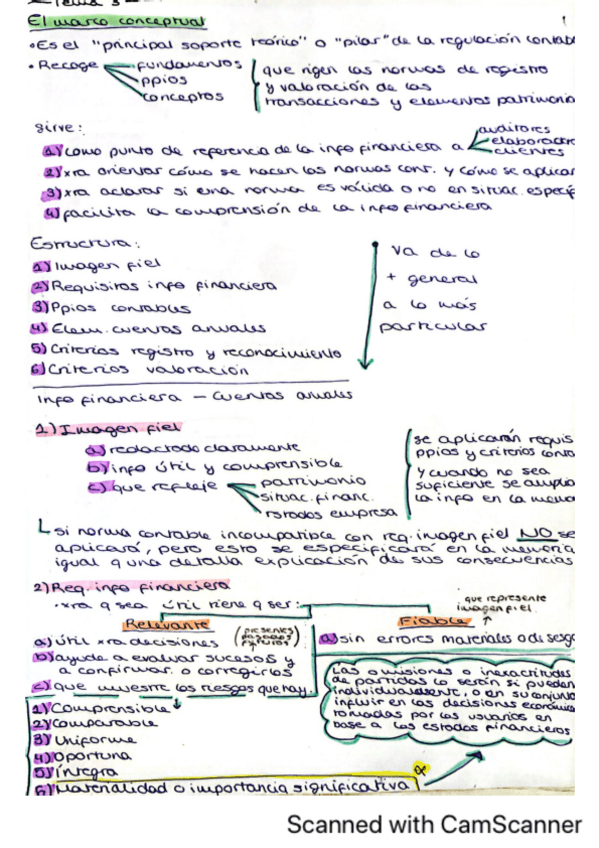 Tema 3
El marco conceptual
1
•Es el "principal soporte teórico" o "pilar" de la regulación contab
•Recoge fundamentos
ppios
conceptos
que rigen las normas de registro
y valoración de las
transacciones y elementos patrimonio
sirve:
1) como punto de referencia de la info financiera a auditores
elaborador
clientes
2) xra orientar cómo se hacen las normas cont. y cómo se aplicar
3) xra aclarar si una norma es válida o no en situac. especif
4) facilita la comprensión de la info financiera
Estructura:
1) Imagen fiel
2) Requisitos info financiera
3) Ppios contables
4) Elem. cuentas anuales
5) Criterios registro y reconocimiento
6) Criterios valoración
va de lo
+ general
a lo más
particular
Info financiera — Cuentas anuales
1) Imagen fiel
a) redactado claramente
b) info útil y comprensible
c) que refleje patrimonio
situac. financ.
rstados empresa
se aplicarán requis
ppios y criterios conta
y cuando no sea
suficiente se amplia
la info en la memo
si norma contable incompatible con req. imagen fiel NO se
aplicará, pero esto se especificará en la memoria
igual q una detalla explicación de sus consecuencias
2) Req. info financiera
•xra q sea útil tiene q ser:
que represente
imagen fiel
Relevante
a) útil xra decisiones (presentes
pasados
futuros)
b) ayude a evaluar sucesos y
a confirmar o corregirlos
c) que muestre los riesgos que hay
Fiable
a) sin errores materiales o de sesgo
1) Comprensible
2) Comparable
3) Uniforme
4) Oportuna
5) Íntegra
6) Materialidad o importancia significativa
Las omisiones o inexactitudes
de partidas lo serán si pueden
individualmente, o en su conjunto
influir en las decisiones económica
tomadas por los usuarios en
base a los estados financieros
Scanned with CamScanner